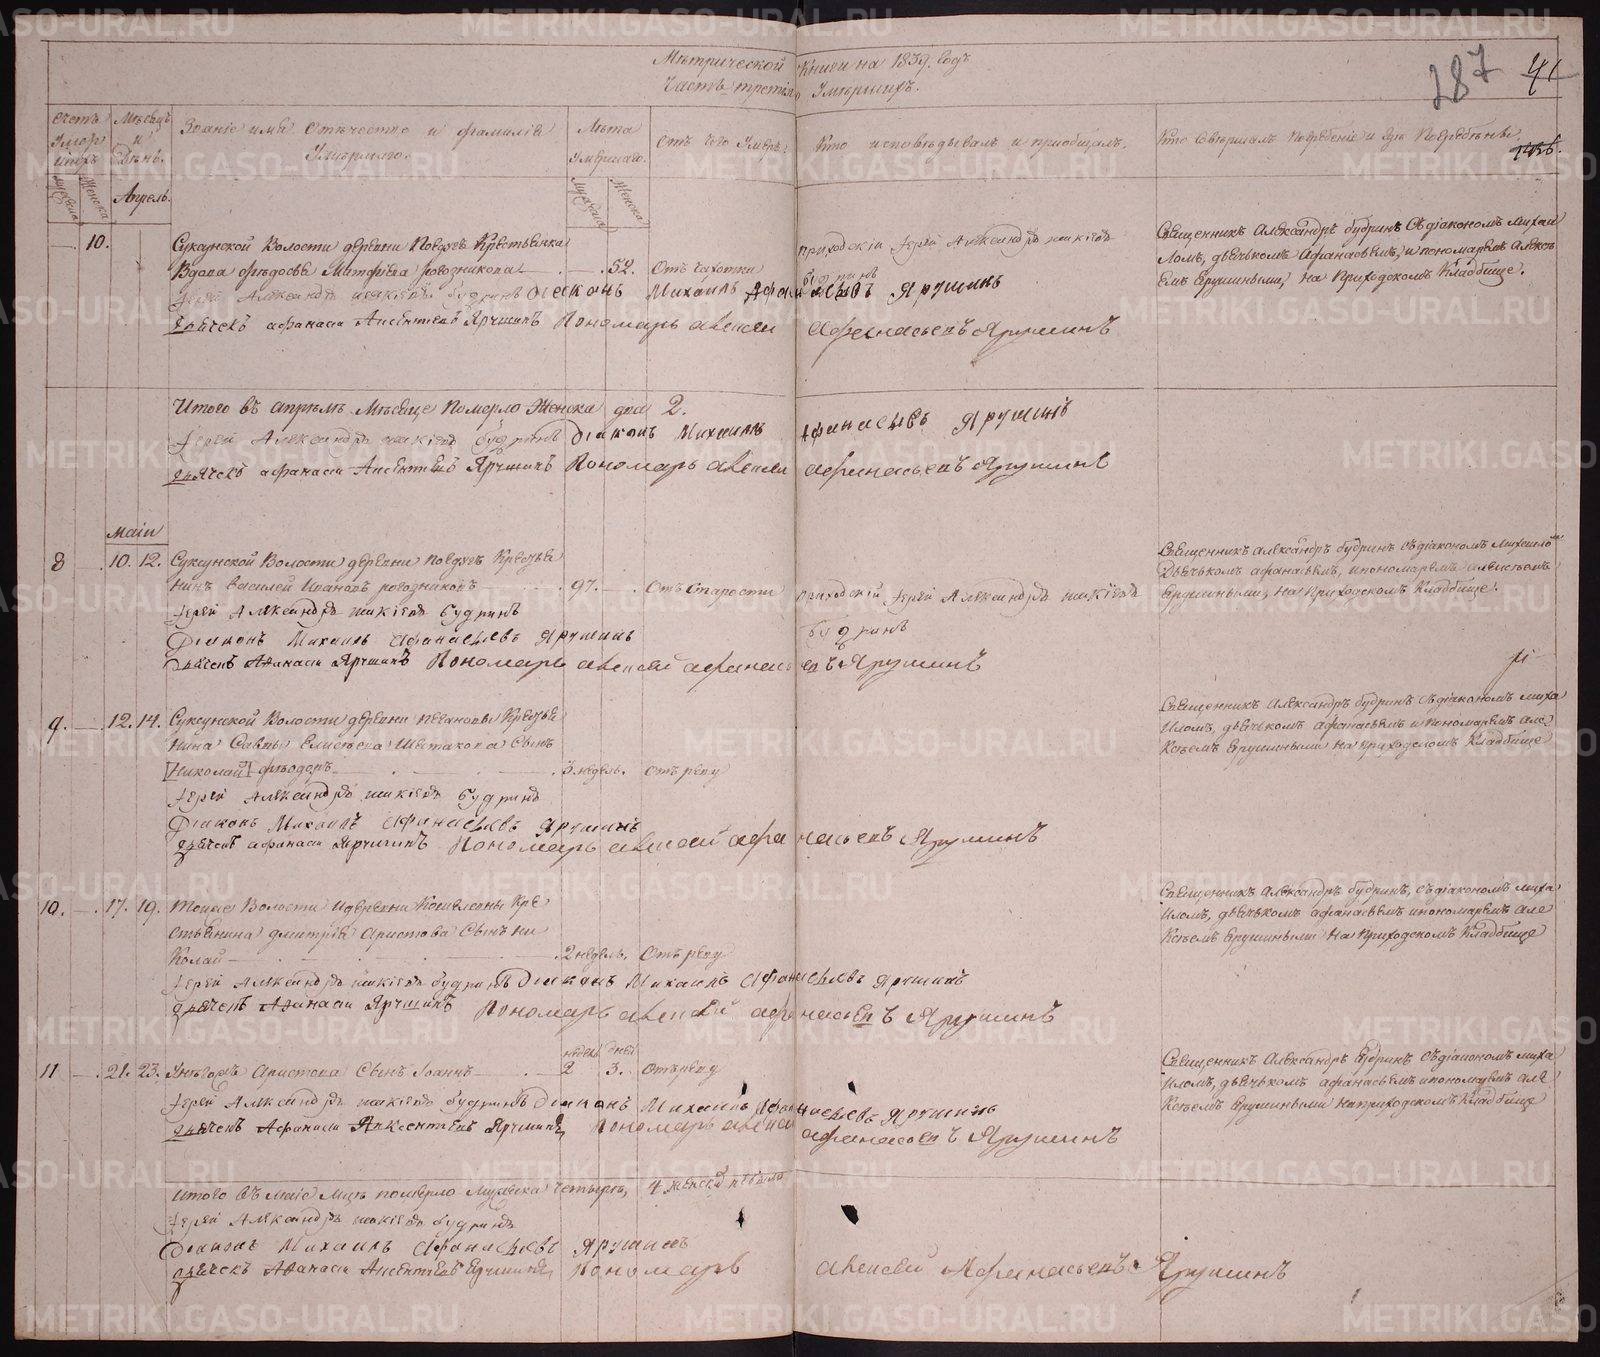 Метрической Книги на 1839. Годъ
Часть третія, Умершихъ.
287 41
Счетъ Умершихъ
Мѣсяцъ и День.
Званіе имя Отъчество и фамилія Умершаго.
Лѣта Умершаго.
Отъ чего Умеръ.
Кто исповѣдывалъ и приобщалъ.
Кто Совѣршалъ Погребеніе и гдѣ Погребѣны.
Мужеска Женска Апрель. Мужеска Женска
10. Суксунской Волости деревни Поедугъ Крестьянка
Вдова Федосья 52. Отъ чахотки
Приходскій Іерей Александръ Будринъ
Священникъ Александръ Будринъ Съ діакономъ Михаи
ломъ, дьячькомъ Афанасьемъ, и пономаремъ Алексъ
Еемъ Ерушиными, на Приходскомъ Кладбище.
Іерей Александръ Будринъ Діаконъ Михаилъ Афанасьевъ Ярушинъ
дьячекъ Афанасій Ярушинъ Пономарь Алексей Афанасьевъ Ярушинъ
Итого въ апрелѣ Мѣсяце Померло Женска два 2.
Іерей Александръ Будринъ Діаконъ Михаилъ Афанасьевъ Ярушинъ
дьячекъ Афанасій Ярушинъ Пономарь Алексей Афанасьевъ Ярушинъ
Маія
8 10. 12. Суксунской Волости деревни Поедугъ Крестья
нинъ Василей Ивановъ 97. Отъ Старости
Приходскій Іерей Александръ Будринъ
Священникъ Александръ Будринъ Съ діакономъ Михаило
Дьячькомъ Афанасьемъ, и пономаремъ Алексѣемъ
Ерушиными, на Приходскомъ Кладбище.
Іерей Александръ Будринъ
Діаконъ Михаилъ Афанасьевъ Ярушинъ
Дьячекъ Афанасій Ярушинъ Пономарь Алексей Афанасьевъ Ярушинъ
9. 12. 14. Суксунской Волости деревни Крестья
нина Савы Сынъ
[Николай] Федоръ 3 недель. Отъ реву
Священникъ Александръ Будринъ Съ діакономъ Миха
иломъ, дьячькомъ Афанасьемъ и пономаремъ Але
Ксѣемъ Ерушиными на приходскомъ Кладбище
Іерей Александръ Будринъ
Діаконъ Михаилъ Афанасьевъ Ярушинъ
дьячекъ Афанасій Ярушинъ Пономарь Алексей Афанасьевъ Ярушинъ
10. 17. 19. Тоеже Волости и деревни Кре
стьянина Дмитрія Аристова Сынъ Ни
Колай 2 недель. Отъ реву
Священникъ Александръ Будринъ, Съ діакономъ Миха
иломъ, дьячькомъ Афанасьемъ и пономаремъ Але
Ксѣемъ Ерушиными на Приходскомъ Кладбище
Іерей Александръ Будринъ Діаконъ Михаилъ Афанасьевъ Ярушинъ
дьячекъ Афанасій Ярушинъ Пономарь Алексей Афанасьевъ Ярушинъ
недель дней
11 21. 23. Аристова Сынъ Іоаннъ 2 3. Отъ реву
Священникъ Александръ Будринъ Съ діакономъ Миха
иломъ, дьячькомъ Афанасьемъ и пономаремъ Але
Ксѣемъ Ерушиными на приходскомъ Кладбище
Іерей Александръ Будринъ Діаконъ Михаилъ Афанасьевъ Ярушинъ
дьячекъ Афанасій Ярушинъ Пономарь Алексей Афанасьевъ Ярушинъ
Итого въ Маіе Мцѣ померло Мужеска четыре, 4 Женска небыло
Іерей Александръ Будринъ
Діаконъ Михаилъ Афанасьевъ Ярушинъ
дьячекъ Афанасій Ерушинъ Пономарь Алексей Афанасьевъ Ярушинъ
METRIKI.GASO-URAL.RU